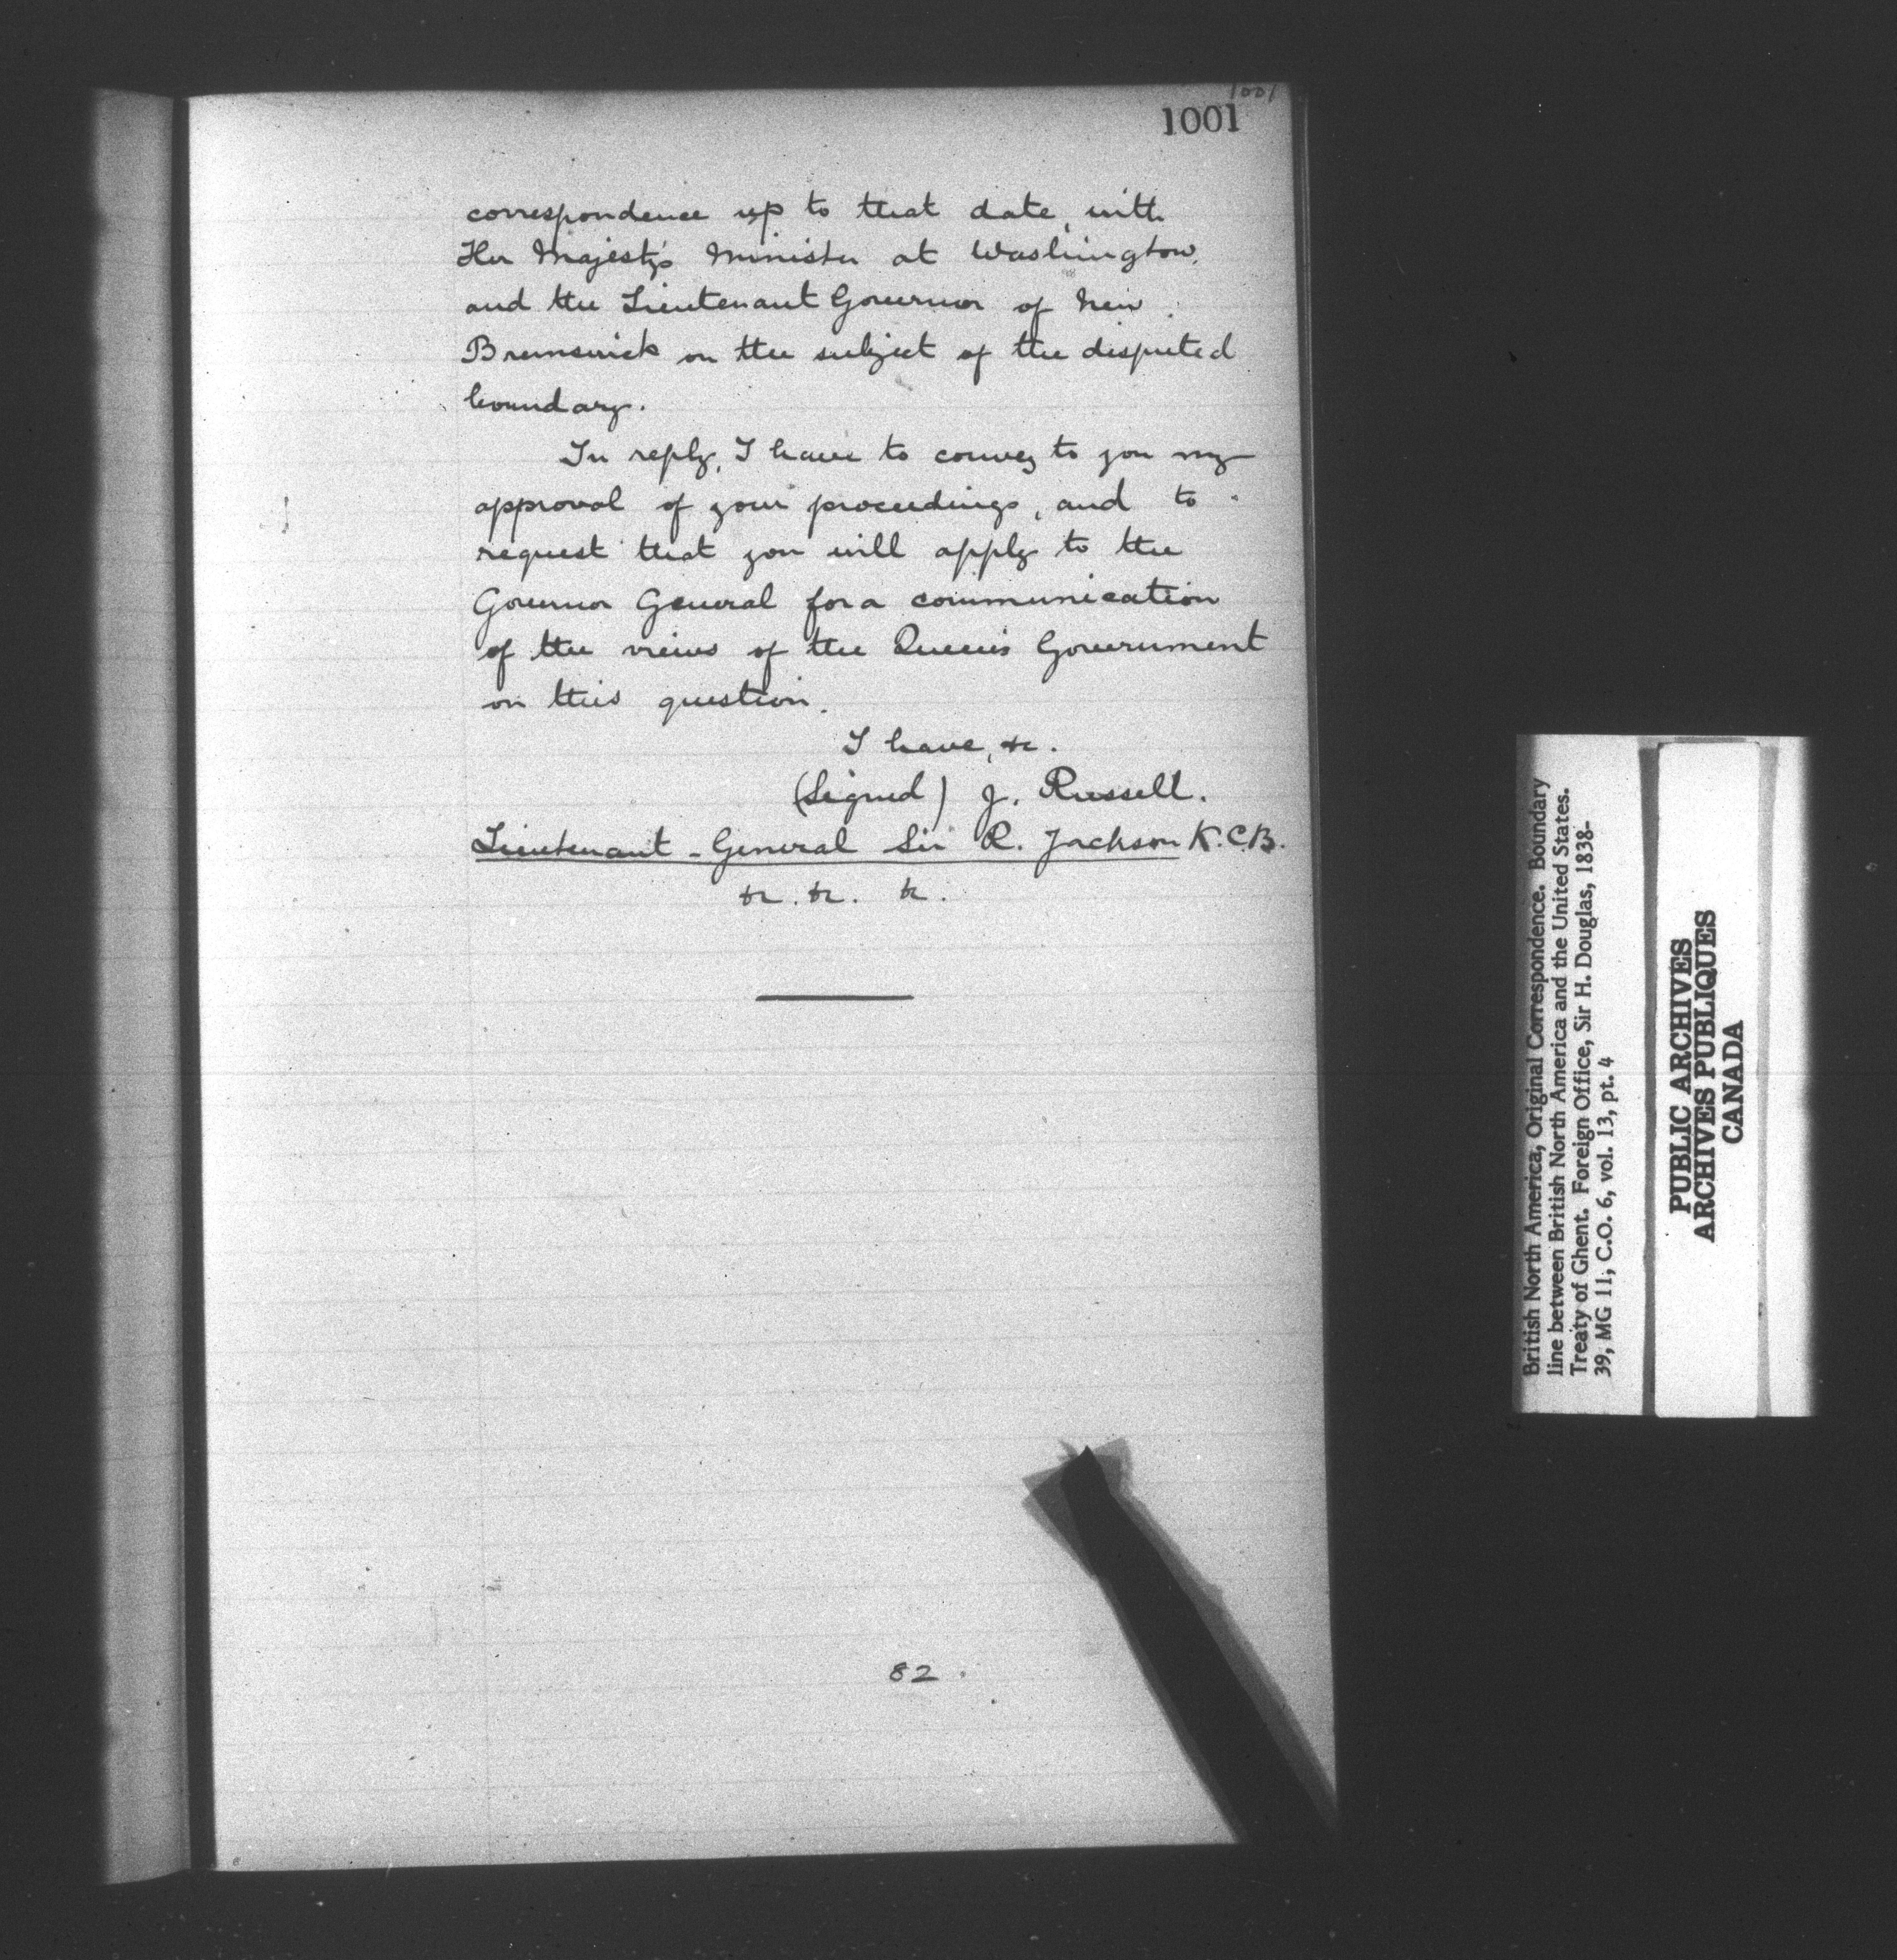 1001
1001
correspondence up to that date, with
Her Majesty's Minister at Washington,
and the Lieutenant Governor of New
Brunswick on the subject of the disputed
boundary.
In reply, I have to convey to you my
approval of your proceedings, and to
request that you will apply to the
Governor General for a communication
of the views of the Queen's Government
on this question.
I have, &c.
(Signed) J. Russell.
Lieutenant-General Sir R. Jackson K.C.B.
&c. &c. &c.
82.
British North America, Original Correspondence. Boundary
line between British North America and the United States.
Treaty of Ghent. Foreign Office, Sir H. Douglas, 1838-
39, MG 11, C.O. 6, vol. 13, pt. 4
PUBLIC ARCHIVES
ARCHIVES PUBLIQUES
CANADA